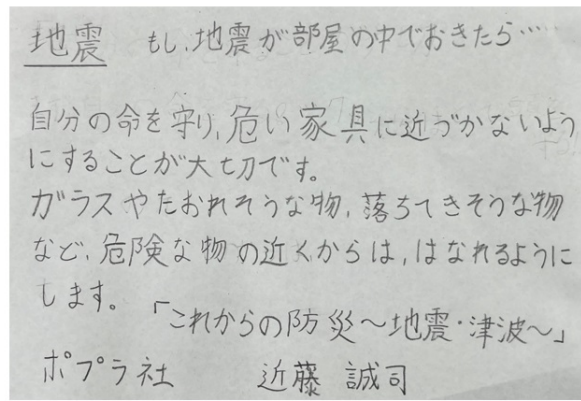 地震　もし、地震が部屋の中でおきたら……
自分の命を守り、危い家具に近づかないよう
にすることが大切です。
ガラスやたおれそうな物、落ちてきそうな物
など、危険な物の近くからは、はなれるように
します。「これからの防災～地震・津波～」
ポプラ社　　近藤 誠司